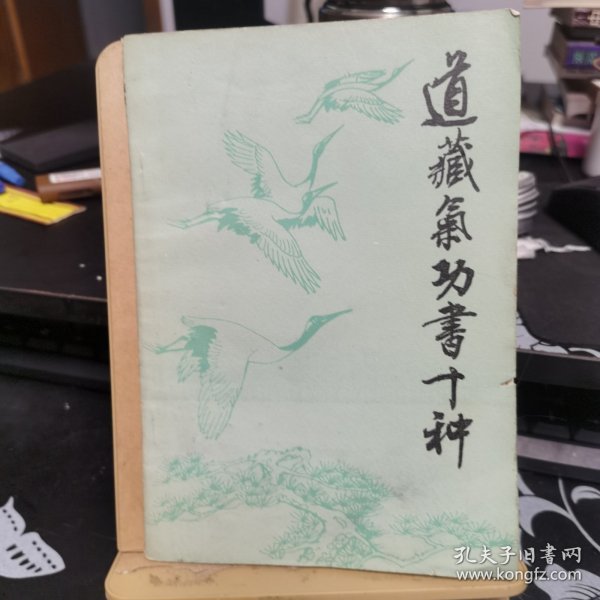 道藏氣功書十种
孔夫子旧書网
www.kongfz.com